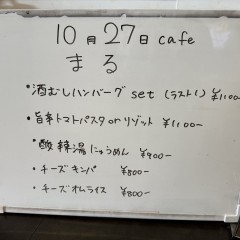 10月27日 cafe
まる
・酒むしハンバーグ set (ラスト1) ¥1100-
・旨辛トマトパスタ or リゾット ¥1100-
・酸辣湯にゅうめん ¥900-
・チーズキンパ ¥800-
・チーズオムライス ¥800-